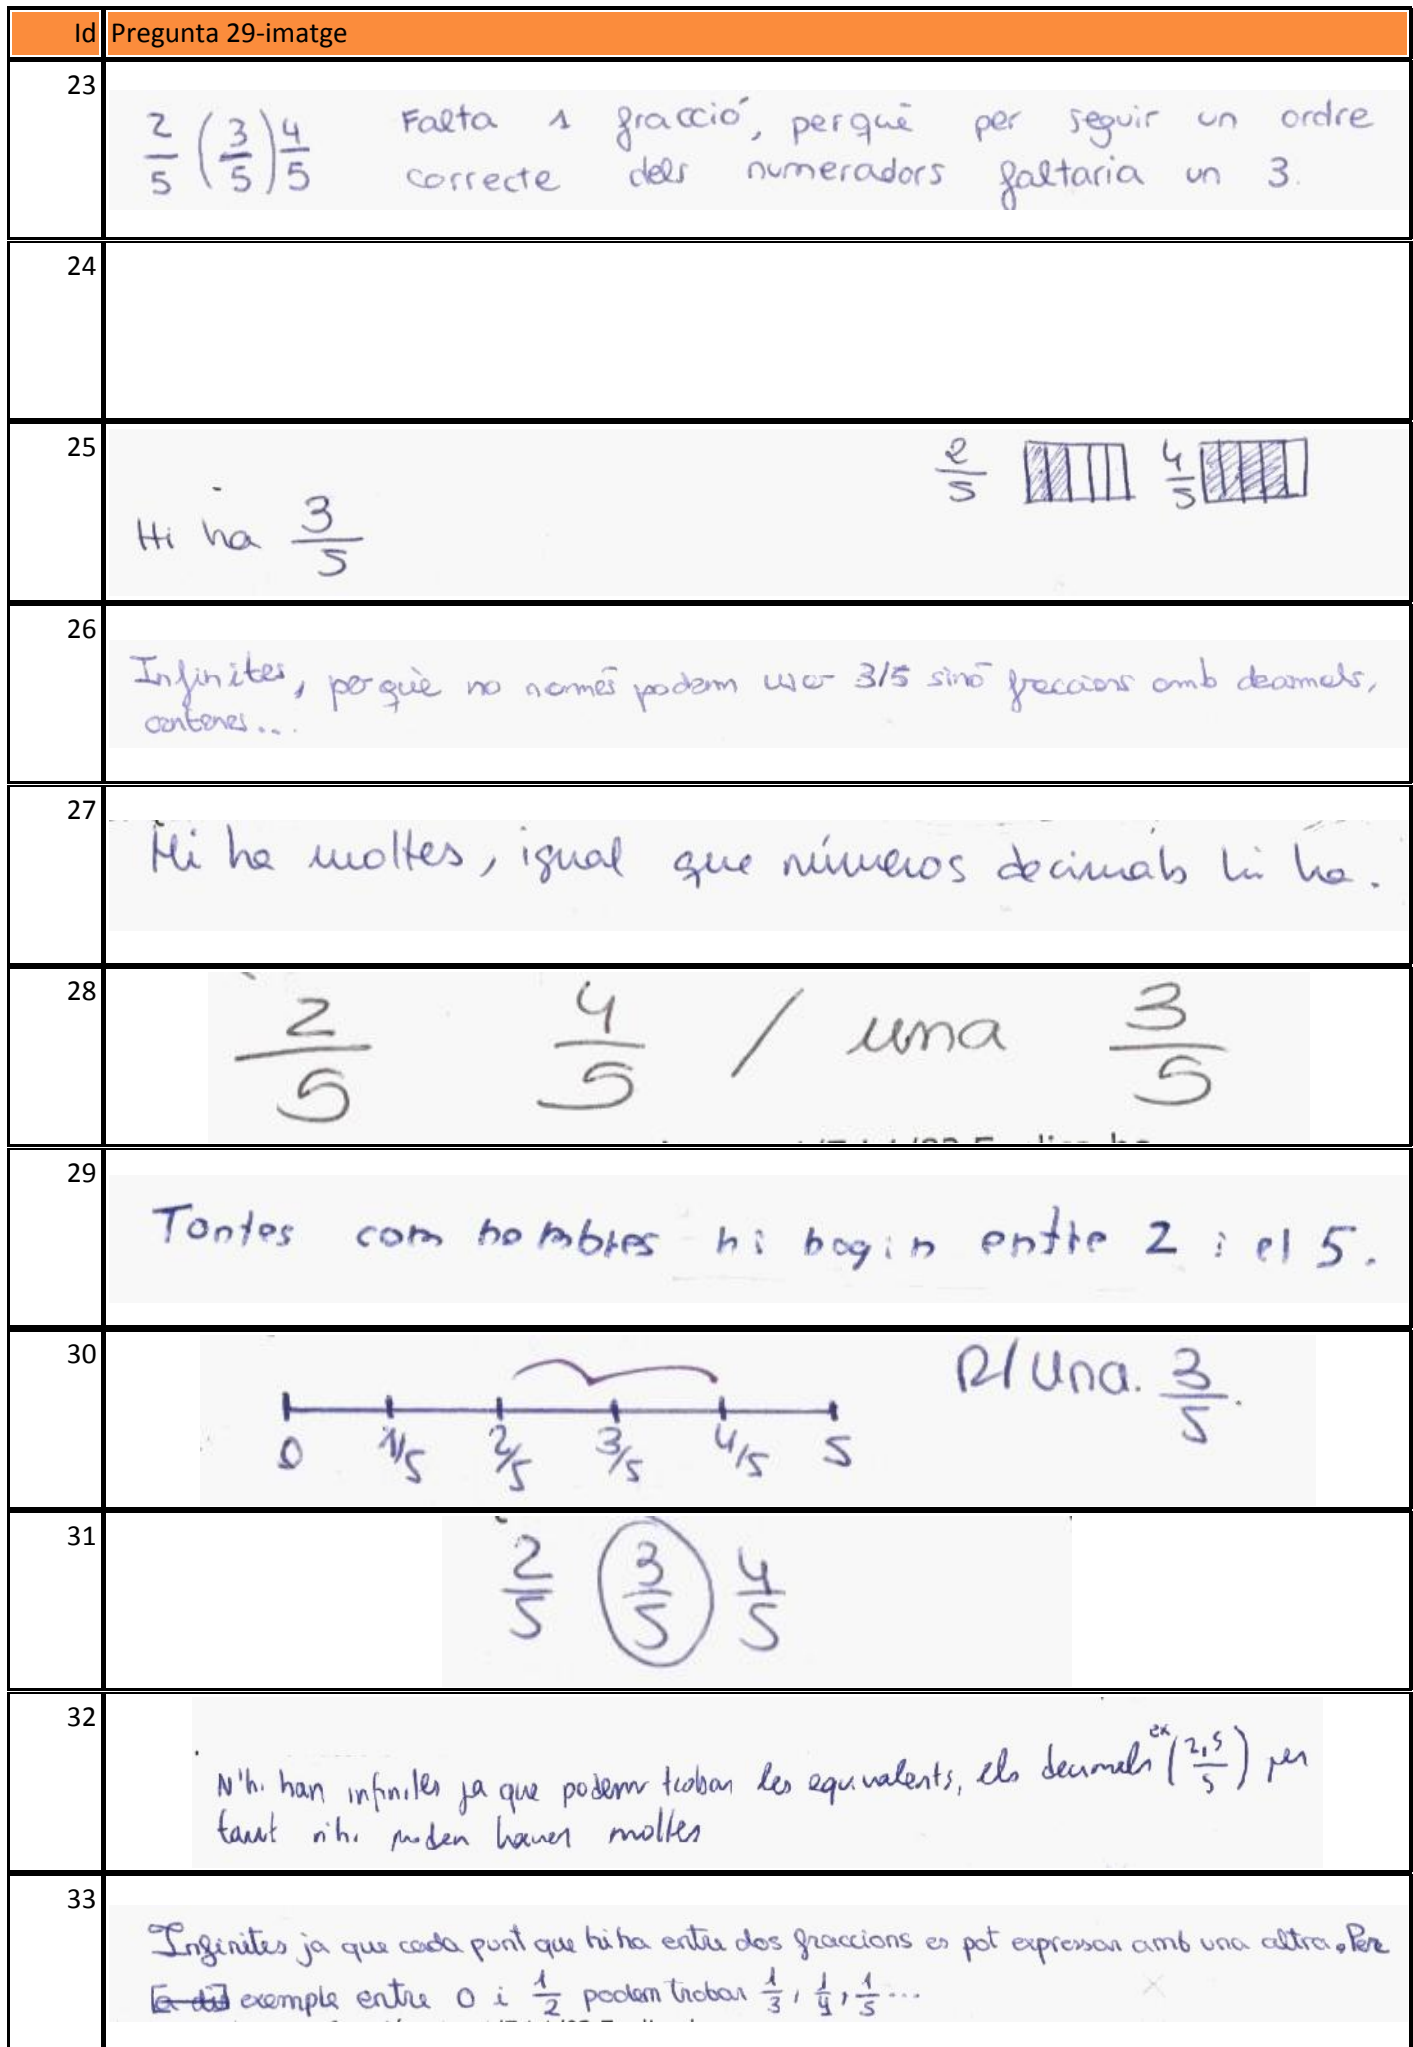 Id Pregunta 29-imatge
23
2/5 (3/5) 4/5 Falta 1 fracció, perquè per seguir un ordre
correcte dels numeradors faltaria un 3.
24
25
2/5 4/5
Hi ha 3/5
26
Infinites, perquè no només podem usar 3/5 sinó fraccions amb decimals,
centenes...
27
Hi ha moltes, igual que números decimals hi ha.
28
2/5 4/5 / una 3/5
29
Tantes com nombres hi hagin entre 2 i el 5.
30
R/ Una. 3/5.
0 1/5 2/5 3/5 4/5 5
31
2/5 3/5 4/5
32
N'hi han infinites ja que podem trobar les equivalents, els decimals ex (2,5/5) per
tant n'hi poden haver moltes
33
Infinites ja que cada punt que hi ha entre dos fraccions es pot expressar amb una altra. Per
exemple entre 0 i 1/2 podem trobar 1/3, 1/4, 1/5...